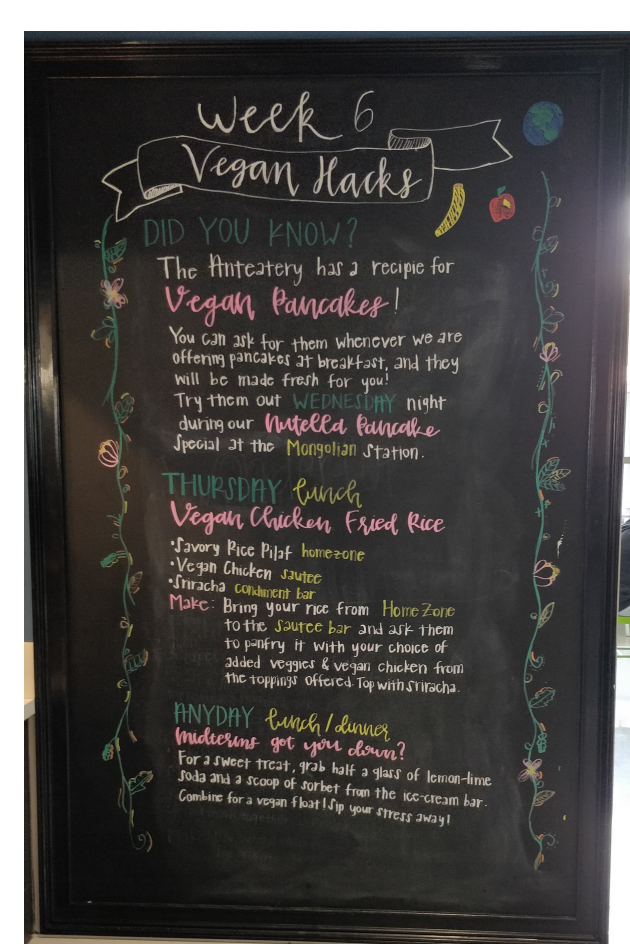 Week 6
Vegan Hacks
DID YOU KNOW?
The Anteatery has a recipie for
Vegan Pancakes!
You can ask for them whenever we are
offering pancakes at breakfast, and they
will be made fresh for you!
Try them out WEDNESDAY night
during our Nutella Pancake
Special at the Mongolian Station.
THURSDAY lunch
Vegan Chicken Fried Rice
•Savory Rice Pilaf homezone
•Vegan Chicken sautee
•Sriracha condiment bar
Make: Bring your rice from HomeZone
to the sautee bar and ask them
to panfry it with your choice of
added veggies & vegan chicken from
the toppings offered. Top with sriracha.
ANYDAY lunch/dinner
Midterms got you down?
For a sweet treat, grab half a glass of lemon-lime
soda and a scoop of sorbet from the ice-cream bar.
Combine for a vegan float! Sip your stress away!